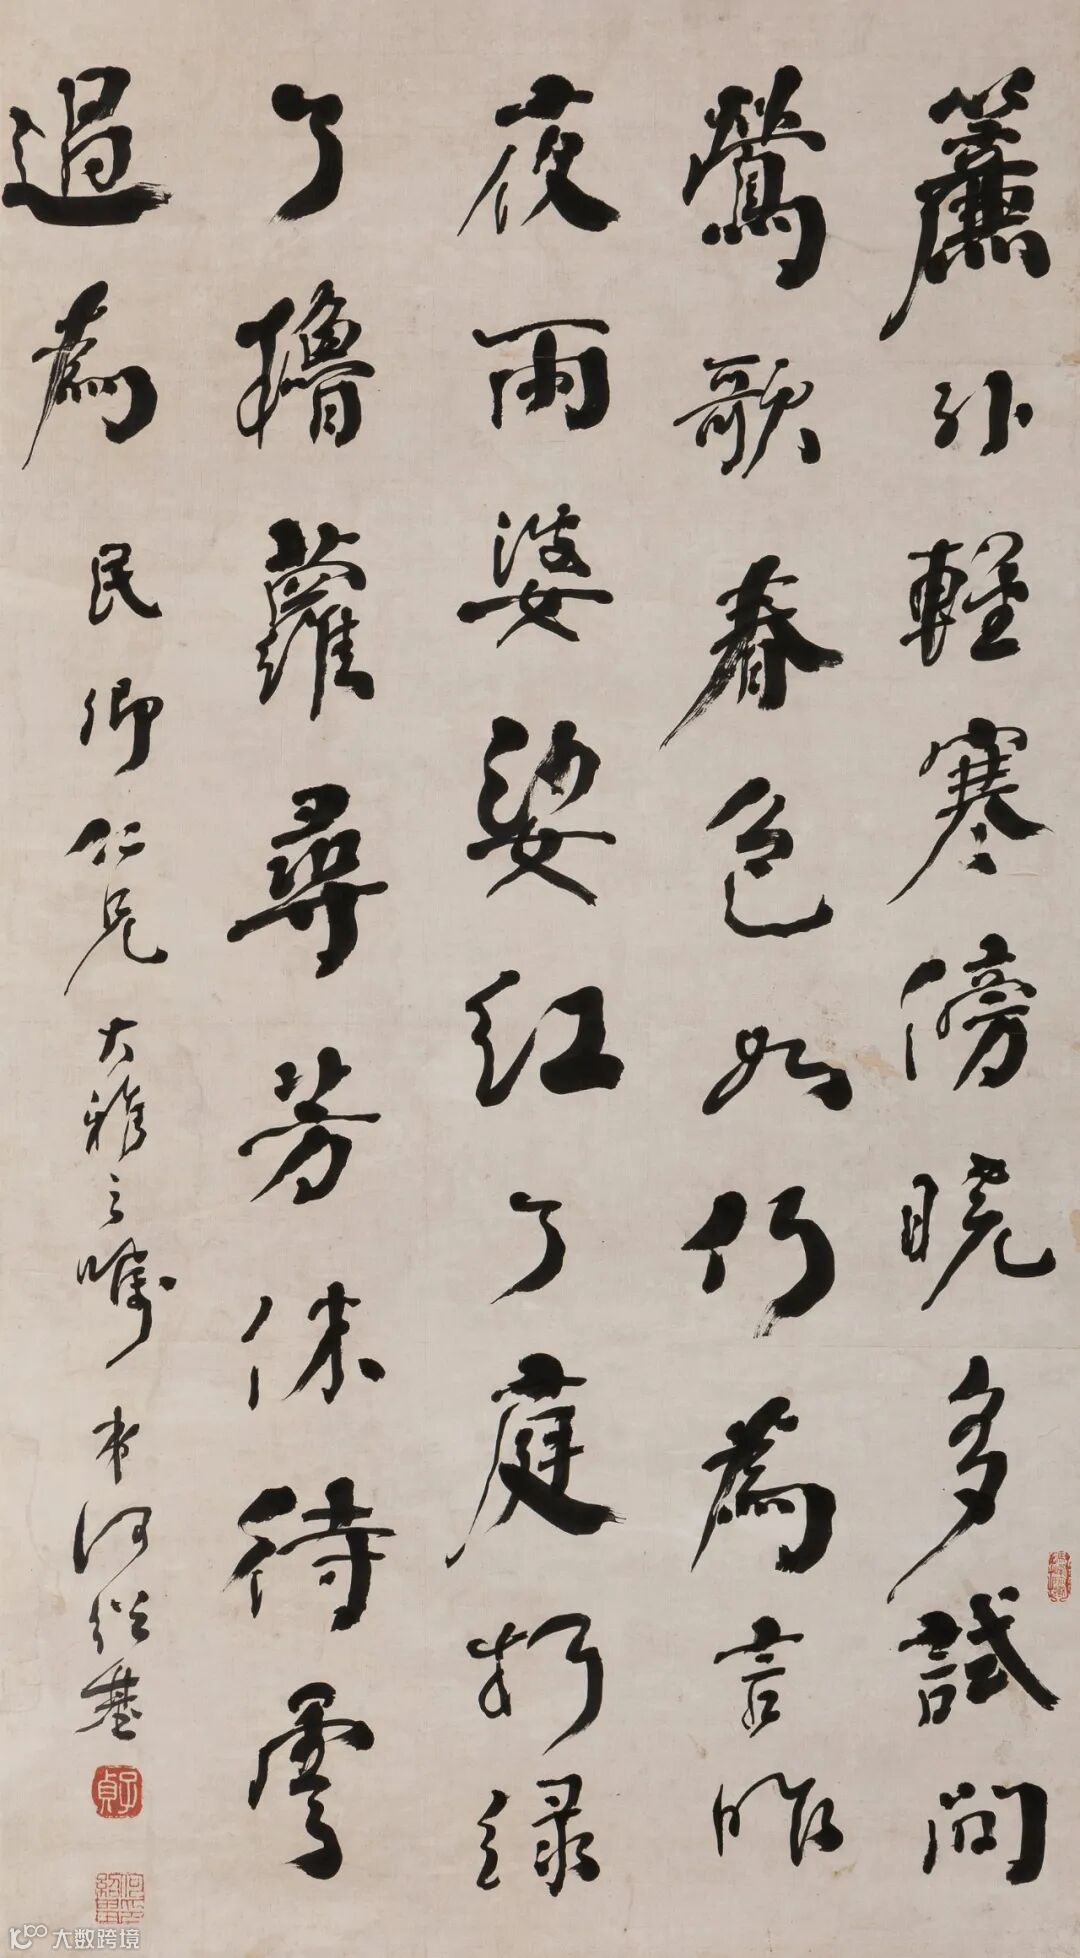 簾外輕寒傍曉多試問
鶯歌春色如何爲言昨
夜雨婆娑紅了庭柯綠
了檐蘿尋芳休待雲
過爲民卿仁兄大雅之囑弟何紹基
子貞
何紹基印
大数跨境